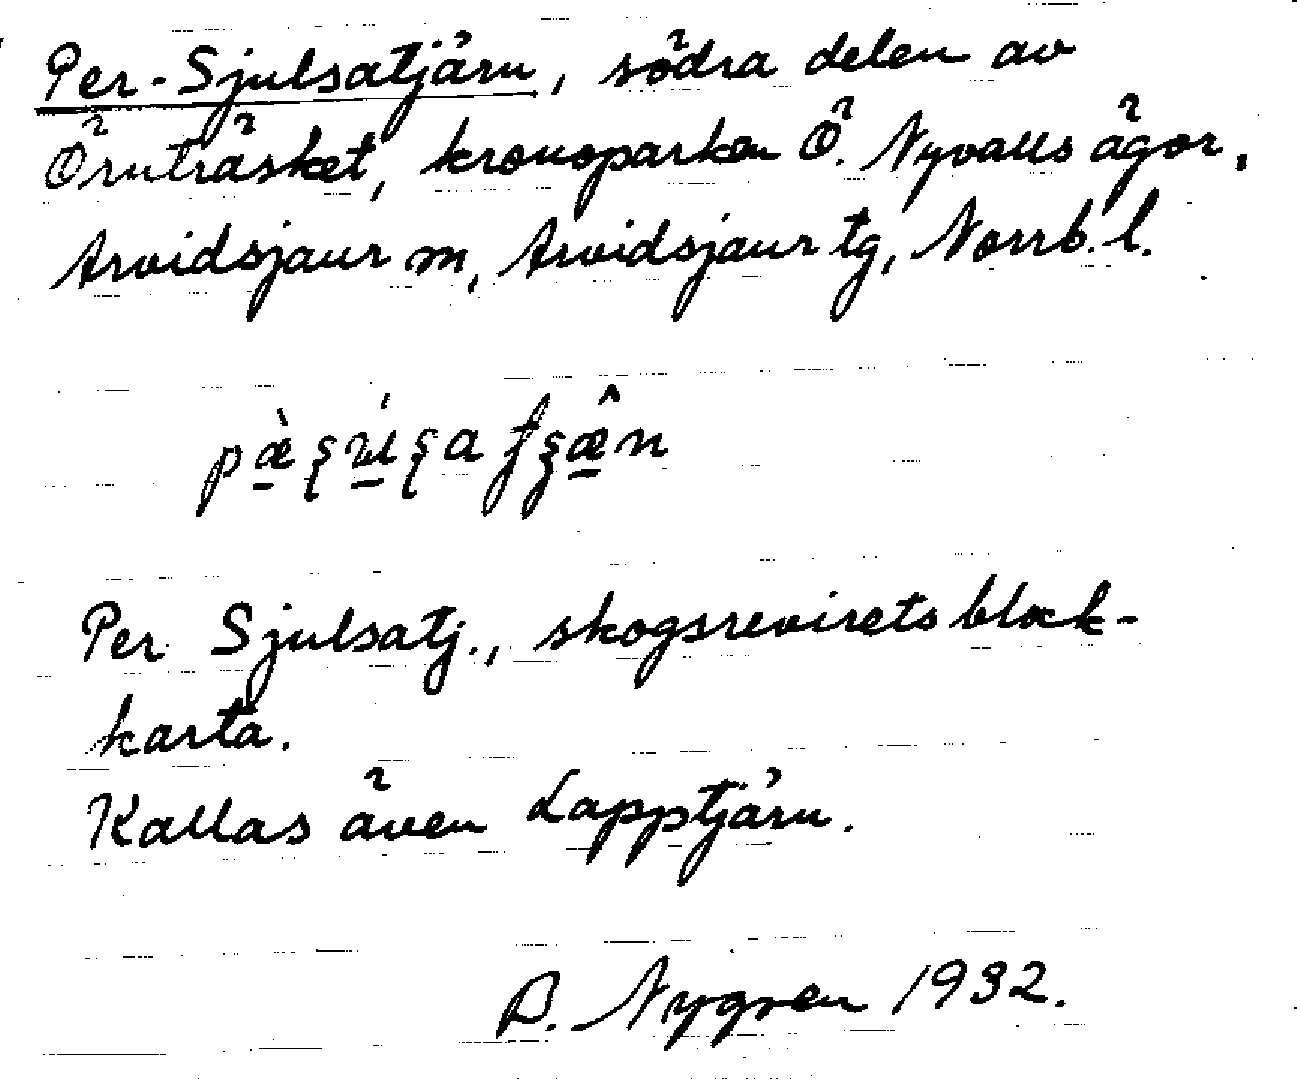 Per-Sjulsatjärn, södra delen av
Örnträsket, kronoparken Ö. Nyvalls ägor,
Arvidsjaur m, Arvidsjaur tg, Norrb. l.
Per Sjulsatj., skogsrevirets block-
karta.
Kallas även Lapptjärn.
B. Nygren 1932.